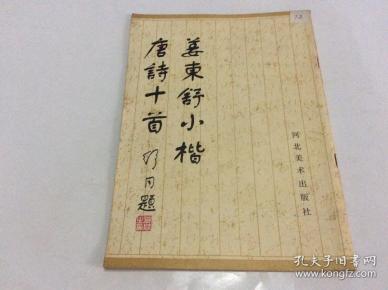 姜東舒小楷
唐詩十首
舒同題
河北美术出版社
孔夫子旧书网